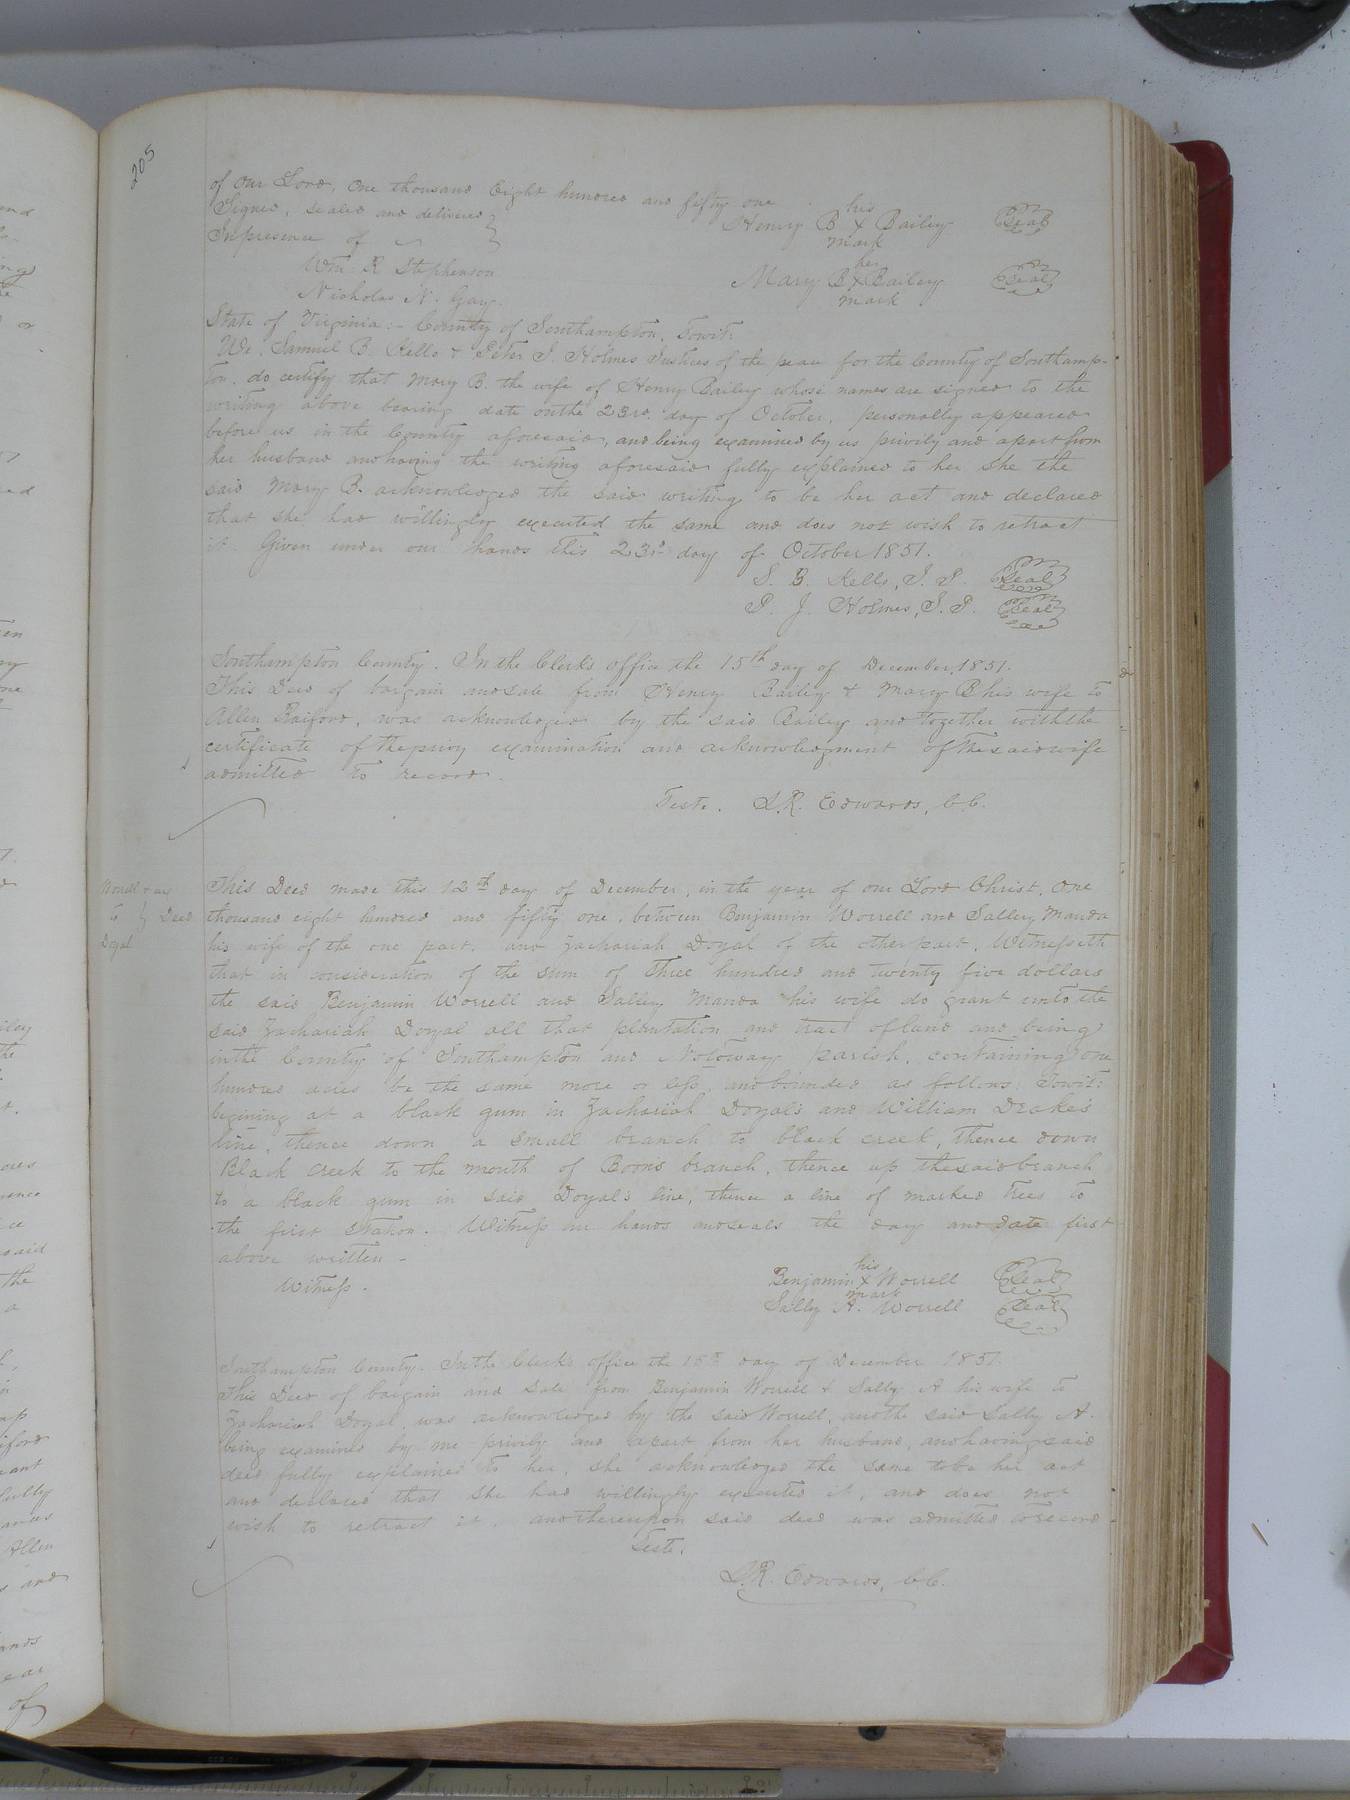 205
of our Lord, One thousand Eight hundred and fifty one
Signed, sealed and delivered }
In presence of
Wm. R Stephenson
Nicholas N. Gay.
his
Henry B X Bailey Seal
mark
her
Mary B X Bailey Seal
mark
State of Virginia :- County of Southampton, Towit:
We, Samuel B. Kello & Peter J. Holmes Justices of the peace for the County of Southamp-
ton. do certify that Mary B. the wife of Henry Bailey whose names are signed to the
writing above bearing date on the 23rd. day of October, personally appeared
before us in the County aforesaid, and being examined by us privily and apart from
her husband and having the writing aforesaid fully explained to her she the
said Mary B. acknowledged the said writing to be her act and declared
that she had willingly executed the same and does not wish to retract
it. Given under our hands this 23rd day of October 1851.
S. B. Kello, J. P. Seal
P. J. Holmes, J. P. Seal
Southampton County. In the Clerk's office the 15th day of December, 1851.
This Deed of bargain and sale from Henry Bailey & Mary B his wife to
Allen Raiford, was acknowledged by the said Bailey and together with the
certificate of the privy examination and acknowledgment of the said wife
admitted to record.
Teste. L.R. Edwards, C.C.
Worrell & ux
to } Deed
Doyal
This Deed made this 12th day of December, in the year of our Lord Christ, One
thousand eight hundred and fifty one, between Benjamin Worrell and Salley Manda
his wife of the one part, and Zachariah Doyal of the other part, Witnesseth
that in consideration of the sum of three hundred and twenty five dollars
the said Benjamin Worrell and Salley Manda his wife do grant unto the
said Zachariah Doyal all that plantation and tract of land and being
in the County of Southampton and Nottoway parish, containing one
hundred acres be the same more or less, and bounded as follows: Towit:
begining at a black gum in Zachariah Doyal's and William Drake's
line, thence down a small branch to black creek, thence down
Black creek to the mouth of Boon's branch, thence up the said branch
to a black gum in said Doyal's line, thence a line of marked trees to
the first station. Witness our hands and seals the day and date first
above written -
Witness.
his
Benjamin X Worrell Seal
mark
Sally A. Worrell Seal
Southampton County. In the Clerk's office the 15th day of December 1851.
This Deed of bargain and sale from Benjamin Worrell & Sally A his wife to
Zachariah Doyal, was acknowledged by the said Worrell, and the said Sally A.
being examined by me privily and apart from her husband, and having said
deed fully explained to her, she acknowledged the same to be her act
and declared that she had willingly executed it, and does not
wish to retract it. and thereupon said deed was admitted to record
Teste.
L.R. Edwards, C.C.